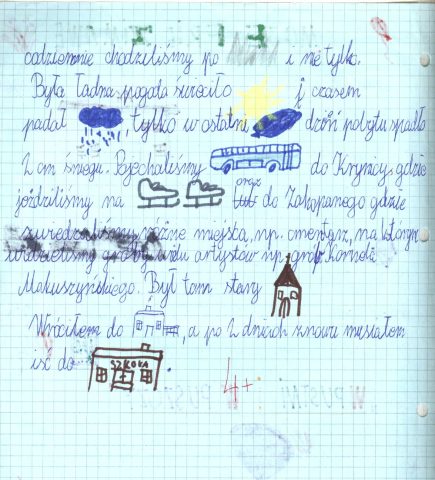 codziennie chodziliśmy po i nie tylko.
Była ładna pogoda świeciło i czasem
padał tylko w ostatni dzień pobytu spadło
2 cm śniegu. Pojechaliśmy do Krynicy, gdzie
jeździliśmy na oraz do Zakopanego gdzie
zwiedzaliśmy różne miejsca, np. cmentarz, na którym
widzieliśmy groby wielu artystów np. grób Kornela
Makuszyńskiego. Był tam stary
Wróciłem do , a po 2 dniach znowu musiałem
iść do SZKOŁA .
4+